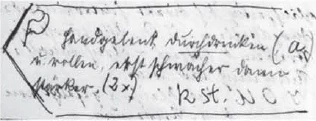 P Handgelenk durchdrücken (
u. rollen, erst schwächer dann
stärker. (2x)